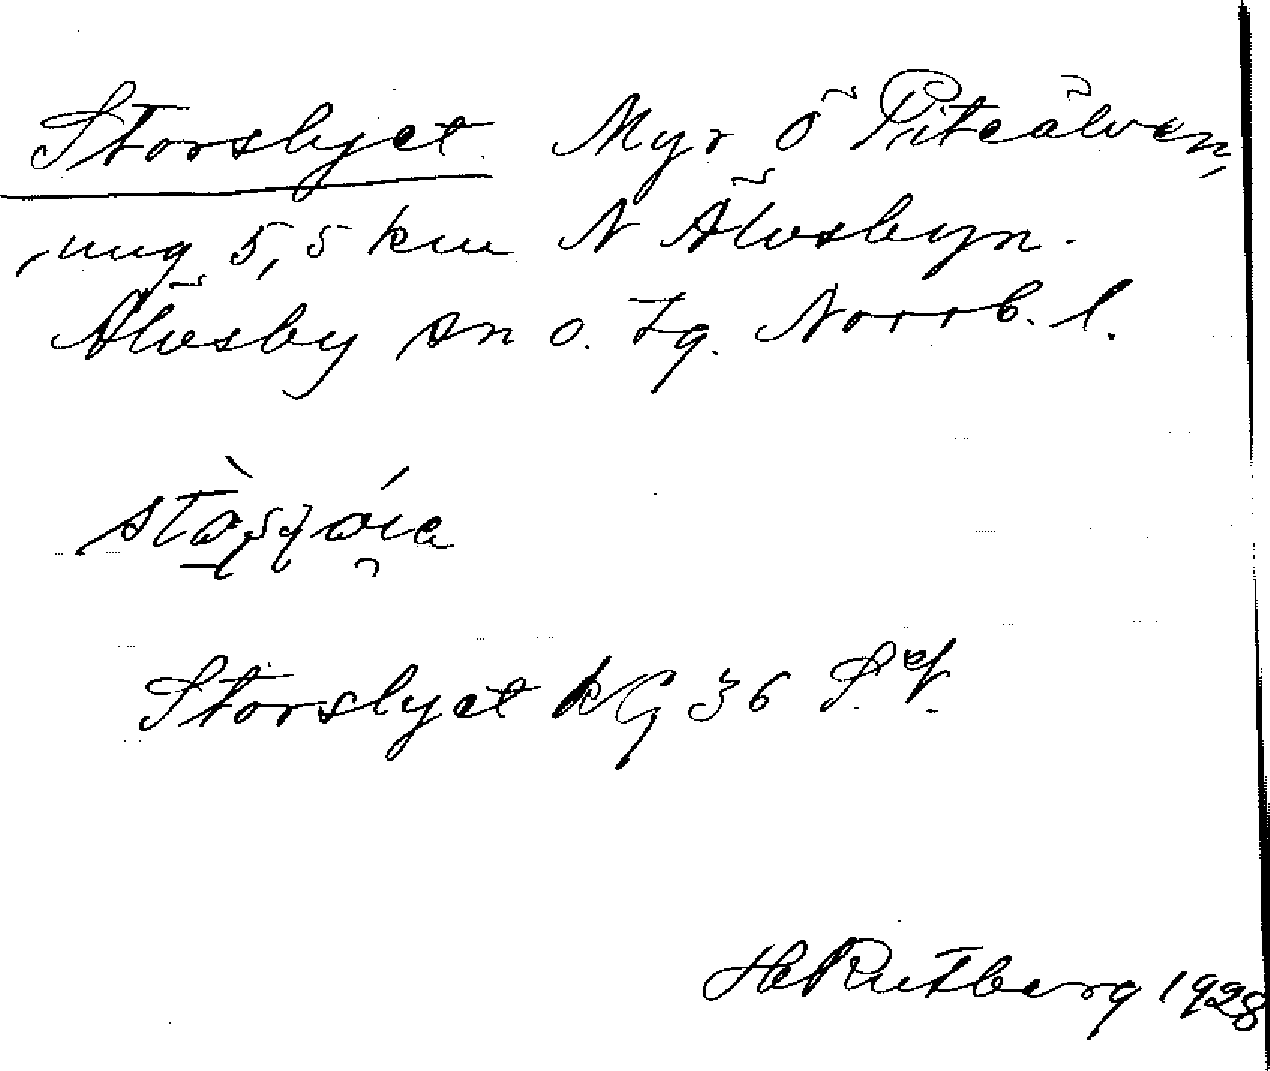 Storslyet Myr Ö Piteälven,
ung 5,5 km N Älvsbyn.
Älvsby sn o. tg. Norrb. l.
Storslyet kG 36 S.
H Rutberg 1928